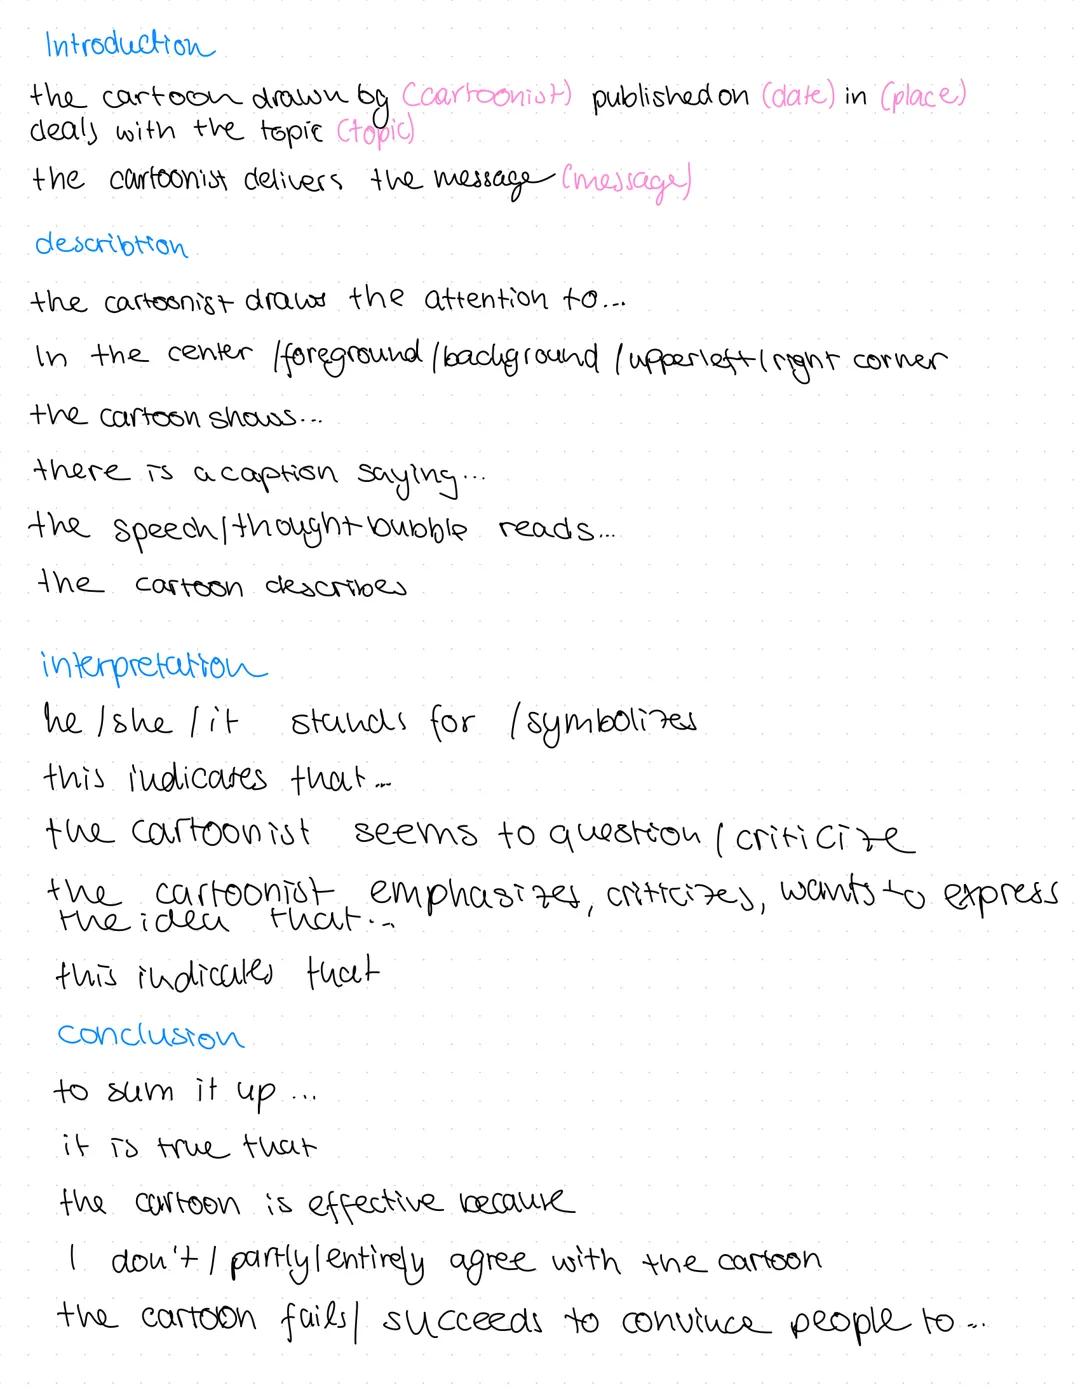 Introduction
the cartoon drawn by (cartoonist) published on (date) in (place)
deals with the topic (topic)
the cartoonist delivers the message (message)
describtion
the cartoonist draws the attention to...
In the center /foreground/background /upperleft/right corner
the cartoon shows...
there is a caption saying...
the speech/thought bubble reads...
the cartoon describes
interpretation
he/she/it stands for /symbolizes
this indicates that...
the cartoonist seems to question/criticize
the cartoonist emphasizes, criticizes, wants to express
the idea that...
this indicates that
conclusion
to sum it up...
it is true that
the cartoon is effective because
I don't/partly/entirely agree with the cartoon
the cartoon fails/ succeeds to convince people to...